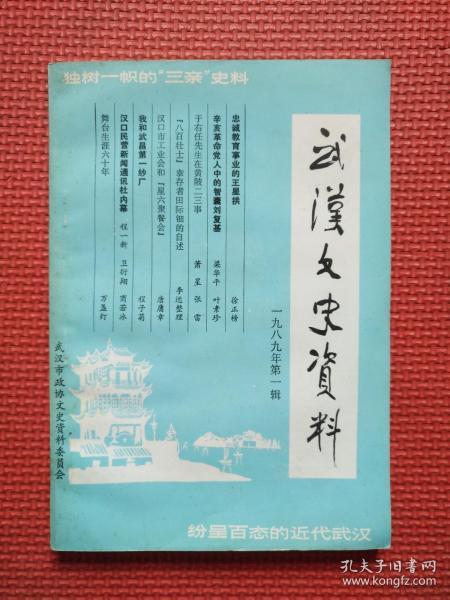 独树一帜的“三亲”史料
武漢文史資料
一九八九年第一辑
忠诚教育事业的王星拱 徐正榜
辛亥革命党人中的智囊刘复基 梁华平 叶素珍
于右任先生在黄陂二三事 萧星 张雷
『八百壮士』幸存者田际钿的自述 李远整理
汉口市工业会和『星六聚餐会』 唐庸章
我和武昌第一纱厂 程子菊
汉口民营新闻通讯社内幕 程一新 卫衍翔 商若冰
舞台生涯六十年 万盏灯
武汉市政协文史资料委员会
纷呈百态的近代武汉
孔夫子旧书网
www.kongfz.com